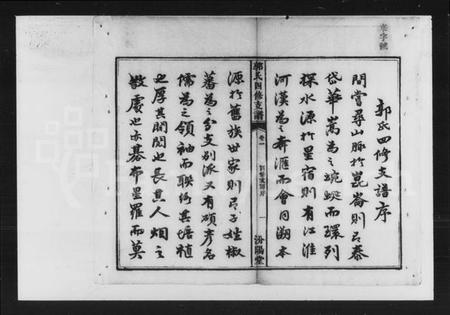 郭氏四修支譜序
間嘗尋山脈於崑崙則有泰
岱華嵩為之蜿蜒而環列
探水源於星宿則有江淮
河漢為之奔滙而會同溯本
郭氏四修支譜
卷一
一
汾陽堂
源於舊族世家則有子姓椒
蕃為之分支別派又有碩彥名
儒為之領袖而聯絡其培植
也厚其閱也長其人烟之
散處也亦碁布星羅而莫